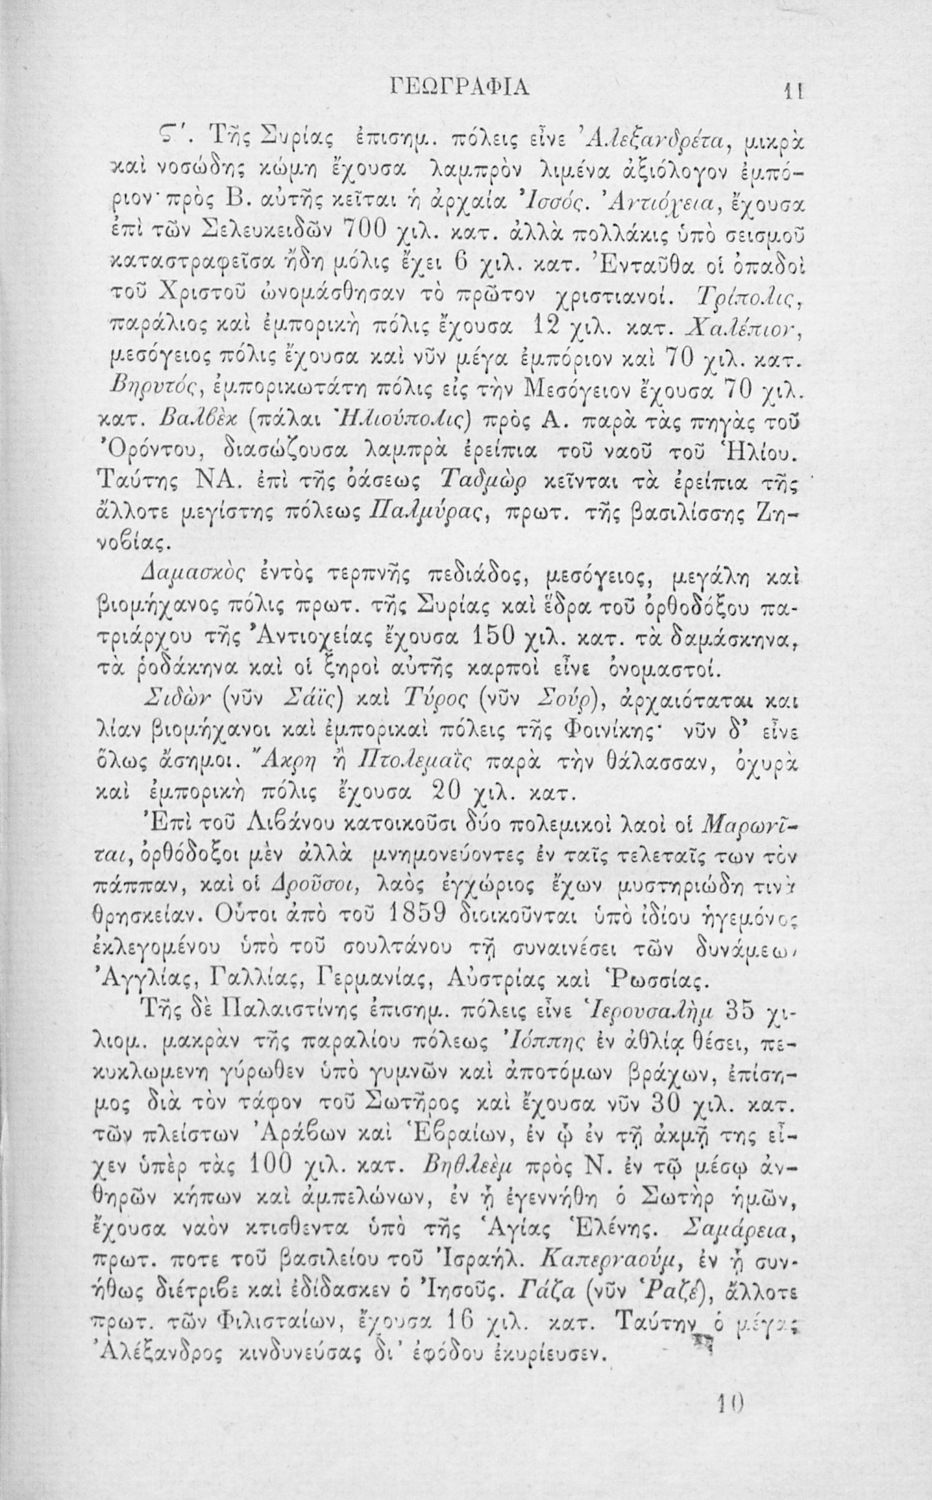 ΓΕΩΓΡΑΦΙΑ 11
Ϛ'. Τῆς Συρίας ἐπισημ. πόλεις εἶνε Ἀλεξανδρέτα, μικρὰ
καὶ νοσώδης κώμη ἔχουσα λαμπρὸν λιμένα ἀξιόλογον ἐμπό-
ριον· πρὸς Β. αὐτῆς κεῖται ἡ ἀρχαία Ἰσσός. Ἀντιόχεια, ἔχουσα
ἐπὶ τῶν Σελευκειδῶν 700 χιλ. κατ. ἀλλὰ πολλάκις ὑπὸ σεισμοῦ
καταστραφεῖσα ἤδη μόλις ἔχει 6 χιλ. κατ. Ἐνταῦθα οἱ ὀπαδοὶ
τοῦ Χριστοῦ ὠνομάσθησαν τὸ πρῶτον χριστιανοί. Τρίπολις,
παράλιος καὶ ἐμπορικὴ πόλις ἔχουσα 12 χιλ. κατ. Χαλέπιον,
μεσόγειος πόλις ἔχουσα καὶ νῦν μέγα ἐμπόριον καὶ 70 χιλ. κατ.
Βηρυτός, ἐμπορικωτάτη πόλις εἰς τὴν Μεσόγειον ἔχουσα 70 χιλ.
κατ. Βαλβὲκ (πάλαι Ἡλιούπολις) πρὸς Α. παρὰ τὰς πηγὰς τοῦ
Ὀρόντου, διασώζουσα λαμπρὰ ἐρείπια τοῦ ναοῦ τοῦ Ἡλίου.
Ταύτης ΝΑ. ἐπὶ τῆς ὀάσεως Ταδμὼρ κεῖνται τὰ ἐρείπια τῆς
ἄλλοτε μεγίστης πόλεως Παλμύρας, πρωτ. τῆς βασιλίσσης Ζη-
νοβίας.
Δαμασκὸς ἐντὸς τερπνῆς πεδιάδος, μεσόγειος, μεγάλη καὶ
βιομήχανος πόλις πρωτ. τῆς Συρίας καὶ ἕδρα τοῦ ὀρθοδόξου πα-
τριάρχου τῆς Ἀντιοχείας ἔχουσα 150 χιλ. κατ. τὰ δαμάσκηνα,
τὰ ῥοδάκηνα καὶ οἱ ξηροὶ αὐτῆς καρποὶ εἶνε ὀνομαστοί.
Σιδὼν (νῦν Σάϊς) καὶ Τύρος (νῦν Σούρ), ἀρχαιόταται και
λίαν βιομήχανοι καὶ ἐμπορικαὶ πόλεις τῆς Φοινίκης· νῦν δ' εἶνε
ὅλως ἄσημοι. Ἄκρη ἢ Πτολεμαῒς παρὰ τὴν θάλασσαν, ὀχυρὰ
καὶ ἐμπορικὴ πόλις ἔχουσα 20 χιλ. κατ.
Ἐπὶ τοῦ Λιβάνου κατοικοῦσι δύο πολεμικοὶ λαοὶ οἱ Μαρωνῖ-
ται, ὀρθόδοξοι μὲν ἀλλὰ μνημονεύοντες ἐν ταῖς τελεταῖς των τὸν
πάππαν, καὶ οἱ Δροῦσοι, λαὸς ἐγχώριος ἔχων μυστηριώδη τινὰ
θρησκείαν. Οὗτοι ἀπὸ τοῦ 1859 διοικοῦνται ὑπὸ ἰδίου ἡγεμόνος
ἐκλεγομένου ὑπὸ τοῦ σουλτάνου τῇ συναινέσει τῶν δυνάμεων
Ἀγγλίας, Γαλλίας, Γερμανίας, Αὐστρίας καὶ Ῥωσσίας.
Τῆς δὲ Παλαιστίνης ἐπισημ. πόλεις εἶνε Ἱερουσαλὴμ 35 χι-
λιομ. μακρὰν τῆς παραλίου πόλεως Ἰόππης ἐν ἀθλίᾳ θέσει, πε-
κυκλωμενη γύρωθεν ὑπὸ γυμνῶν καὶ ἀποτόμων βράχων, ἐπίση-
μος διὰ τὸν τάφον τοῦ Σωτῆρος καὶ ἔχουσα νῦν 30 χιλ. κατ.
τῶν πλείστων Ἀράβων καὶ Ἑβραίων, ἐν ᾧ ἐν τῇ ἀκμῇ της εἶ-
χεν ὑπὲρ τὰς 100 χιλ. κατ. Βηθλεὲμ πρὸς Ν. ἐν τῷ μέσῳ ἀν-
θηρῶν κήπων καὶ ἀμπελώνων, ἐν ᾗ ἐγεννήθη ὁ Σωτὴρ ἡμῶν,
ἔχουσα ναὸν κτισθεντα ὑπὸ τῆς Ἁγίας Ἑλένης. Σαμάρεια,
πρωτ. ποτε τοῦ βασιλείου τοῦ Ἰσραήλ. Καπερναούμ, ἐν ᾗ συν-
ήθως διέτριβε καὶ ἐδίδασκεν ὁ Ἰησοῦς. Γάζα (νῦν Ῥαζέ), ἄλλοτε
πρωτ. τῶν Φιλισταίων, ἔχουσα 16 χιλ. κατ. Ταύτην ὁ μέγας
Ἀλέξανδρος κινδυνεύσας δι' ἐφόδου ἐκυρίευσεν.
10